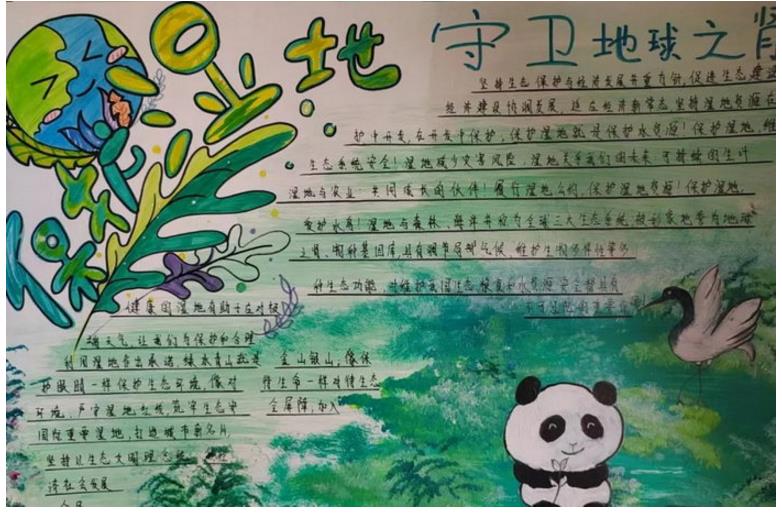 保护湿地
守卫地球之肾
坚持生态保护与经济发展并重方针,促进生态建设
经济建设协调发展,适应经济新常态坚持湿地资源在
护中开发,在开发中保护,保护湿地就是保护水资源!保护湿地,维
生态系统安全!湿地减少灾害风险,湿地关乎我们的未来:可持续的生计
湿地与农业:共同成长的伙伴!履行湿地公约,保护湿地资源!保护湿地,
爱护水鸟!湿地与森林、海洋并称为全球三大生态系统,被形象地誉为地球
之肾、物种基因库,具有调节局部气候、维护生物多样性等多
种生态功能,对维护我国生态、粮食和水资源安全都具有
健康的湿地有助于应对极
端天气,让我们为保护和合理
利用湿地作出承诺,绿水青山就是
金山银山,像保
护眼睛一样保护生态环境,像对
待生命一样对待生态
环境,严守湿地红线,筑牢生态安
全屏障,加入
国际重要湿地,打造城市新名片,
坚持以生态文明理念
济社会发展